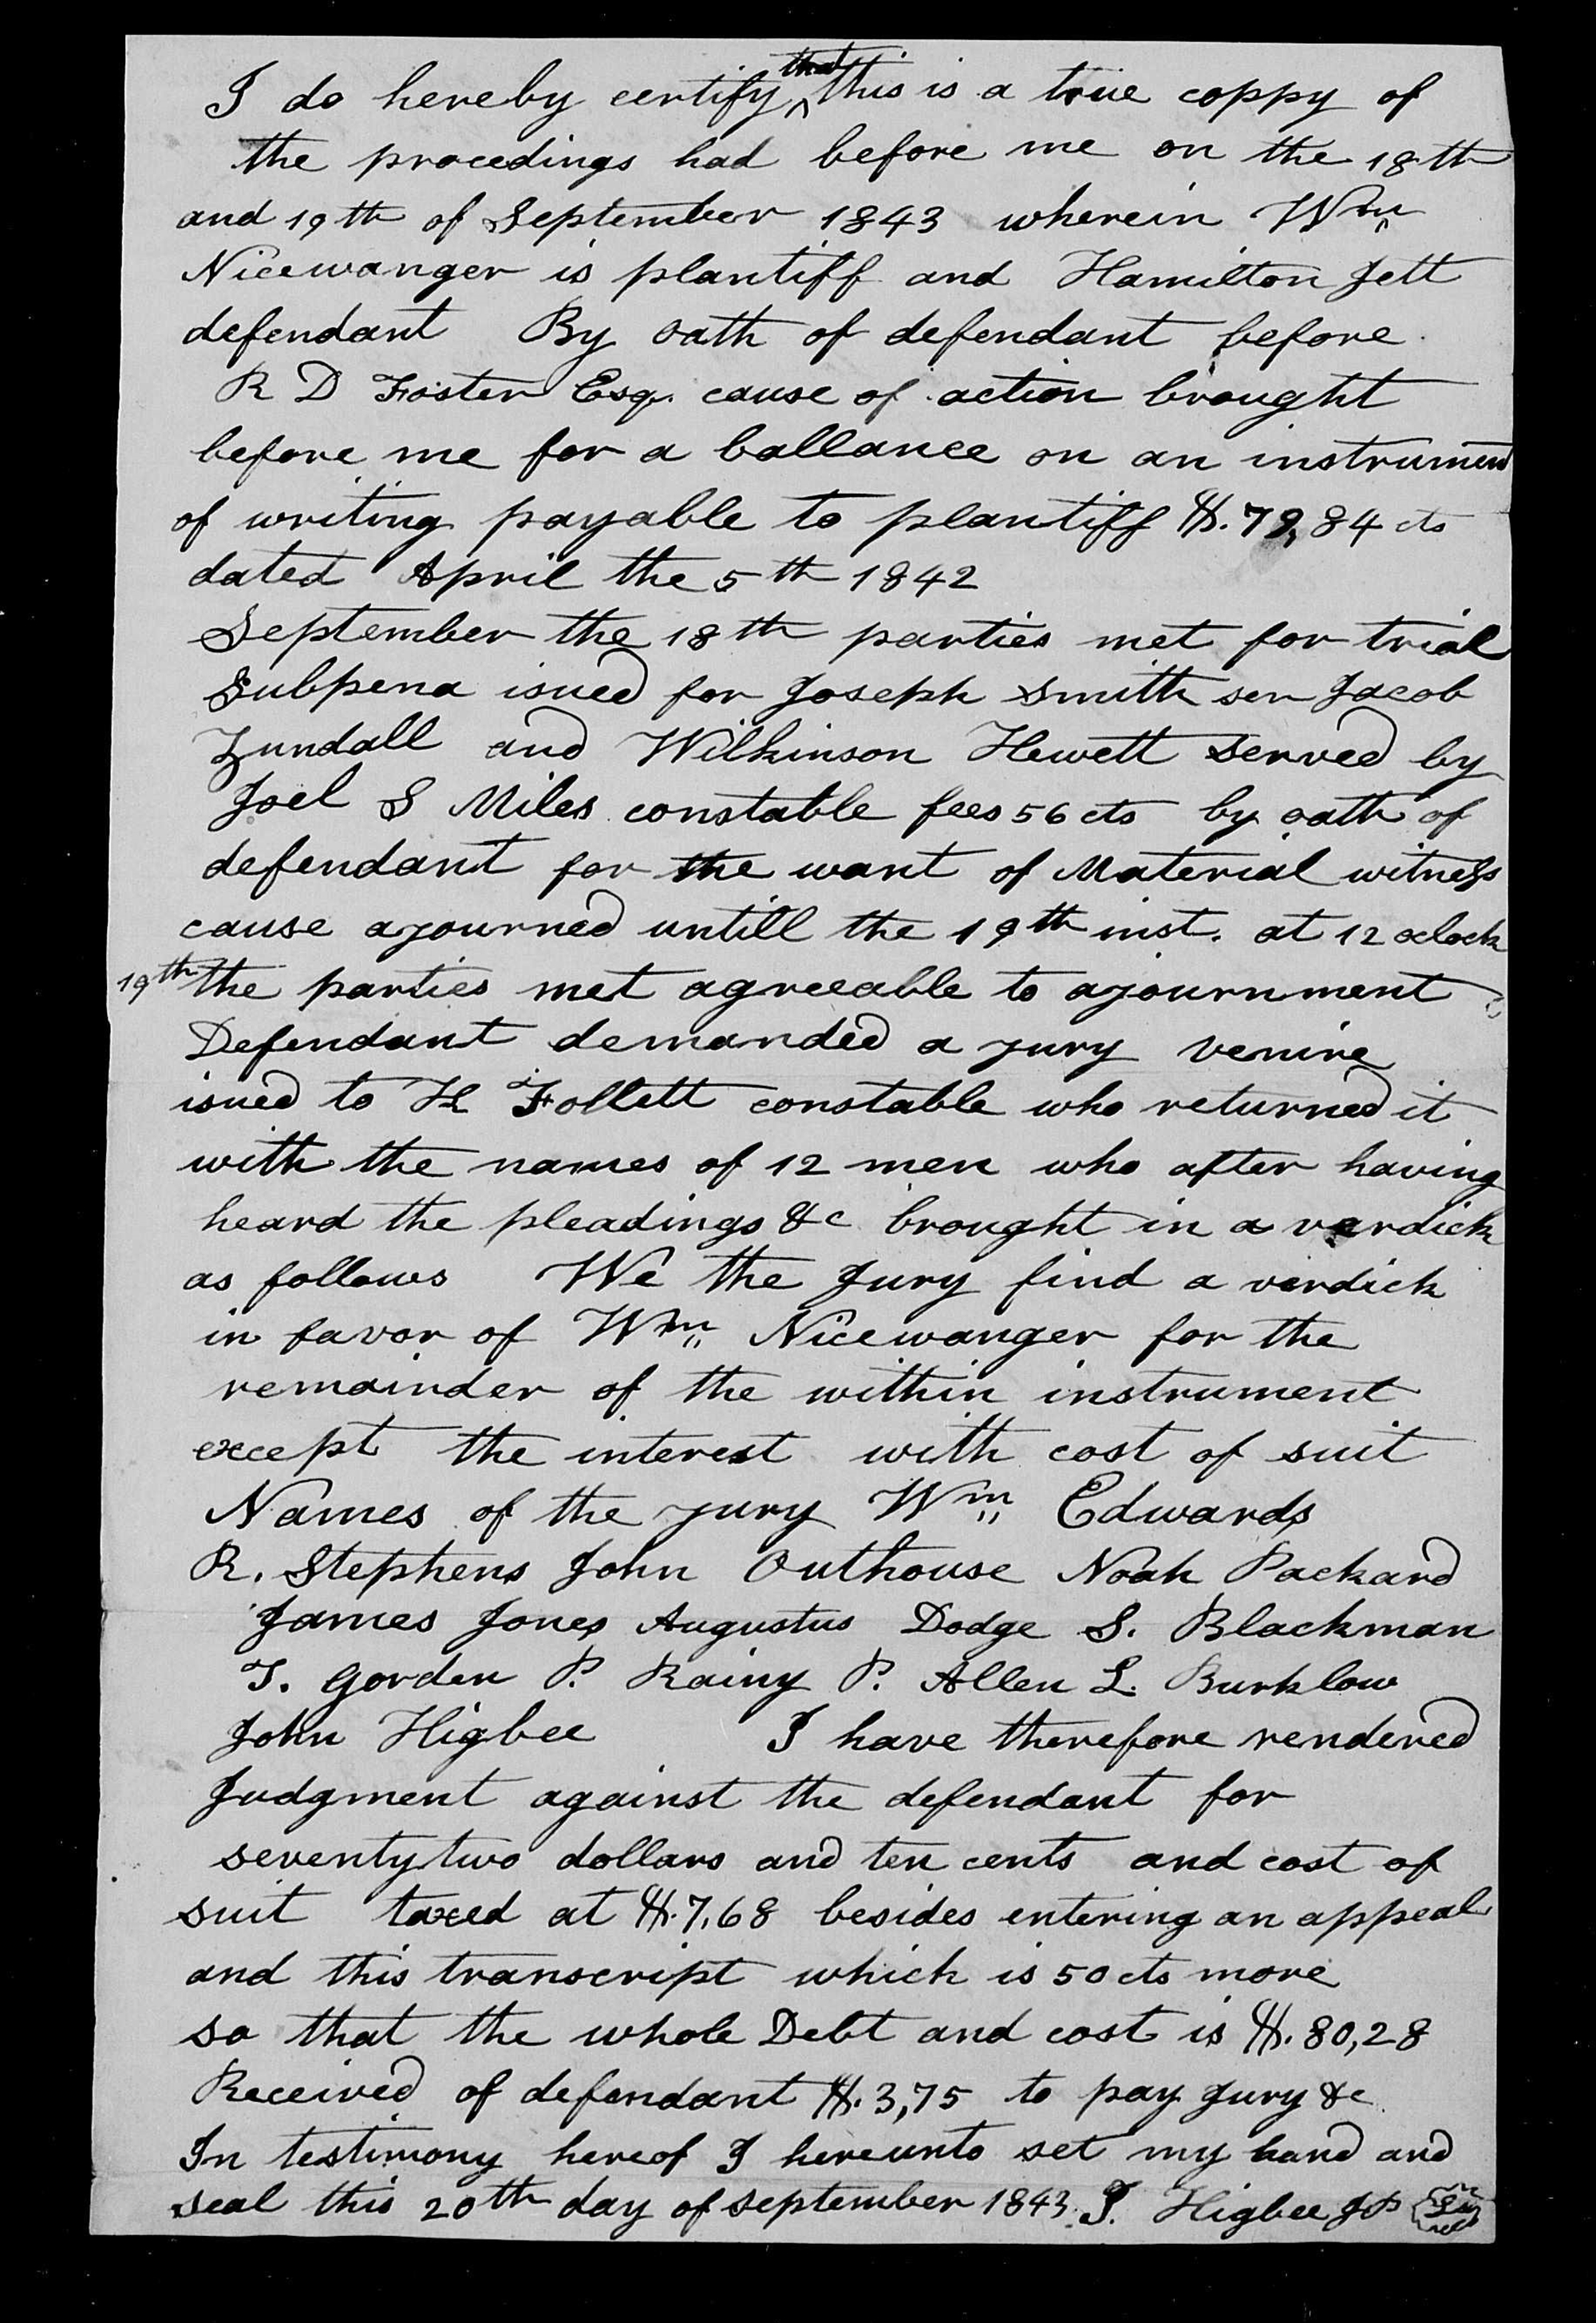 I do hereby certify that this is a true coppy of
the procedings had before me on the 18th
and 19th of September 1843 wherein Wm
Nicewanger is plantiff and Hamilton Jett
defendant By oath of defendant before
R D Foster Esqr. cause of action brought
before me for a ballance on an instrument
of writing payable to plantiff $.79,84 cts
dated April the 5th 1842
September the 18th parties met for trial
Subpena isued for Joseph Smith sen Jacob
Zundall and Wilkinson Hewett served by
Joel S Miles constable fees 56 cts by oath of
defendant for the want of Material witness
cause ajourned untill the 19th inst. at 12 oclock
19th the parties met agreeable to ajournment
Defendant demanded a jury venire
isued to K Follett constable who returned it
with the names of 12 men who after having
heard the pleadings &c brought in a verdick
as follows We the Jury find a verdick
in favor of Wm Nicewanger for the
remainder of the within instrument
except the interest with cost of suit
Names of the jury Wm Edwards
R. Stephens John Outhouse Noah Packard
James Jones Augustus Dodge S. Blackman
T. Gorden P. Rainy P. Allen L. Burklow
John Higbee I have therefore rendered
Judgment against the defendant for
seventy two dollars and ten cents and cost of
suit taxed at $.7,68 besides entering an appeal
and this transcript which is 50 cts more
so that the whole Debt and cost is $.80,28
Received of defendant $.3,75 to pay Jury &c
In testimony hereof I hereunto set my hand and
seal this 20th day of September 1843. I. Higbee JP